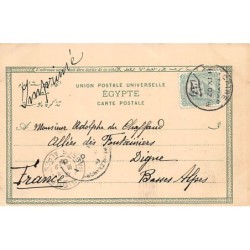 Imprimé
UNION POSTALE UNIVERSELLE
ÉGYPTE
CARTE POSTALE
A Monsieur Adolphe du Chaffaud
Allées des Fontainiers
Digne
France
Basses Alpes